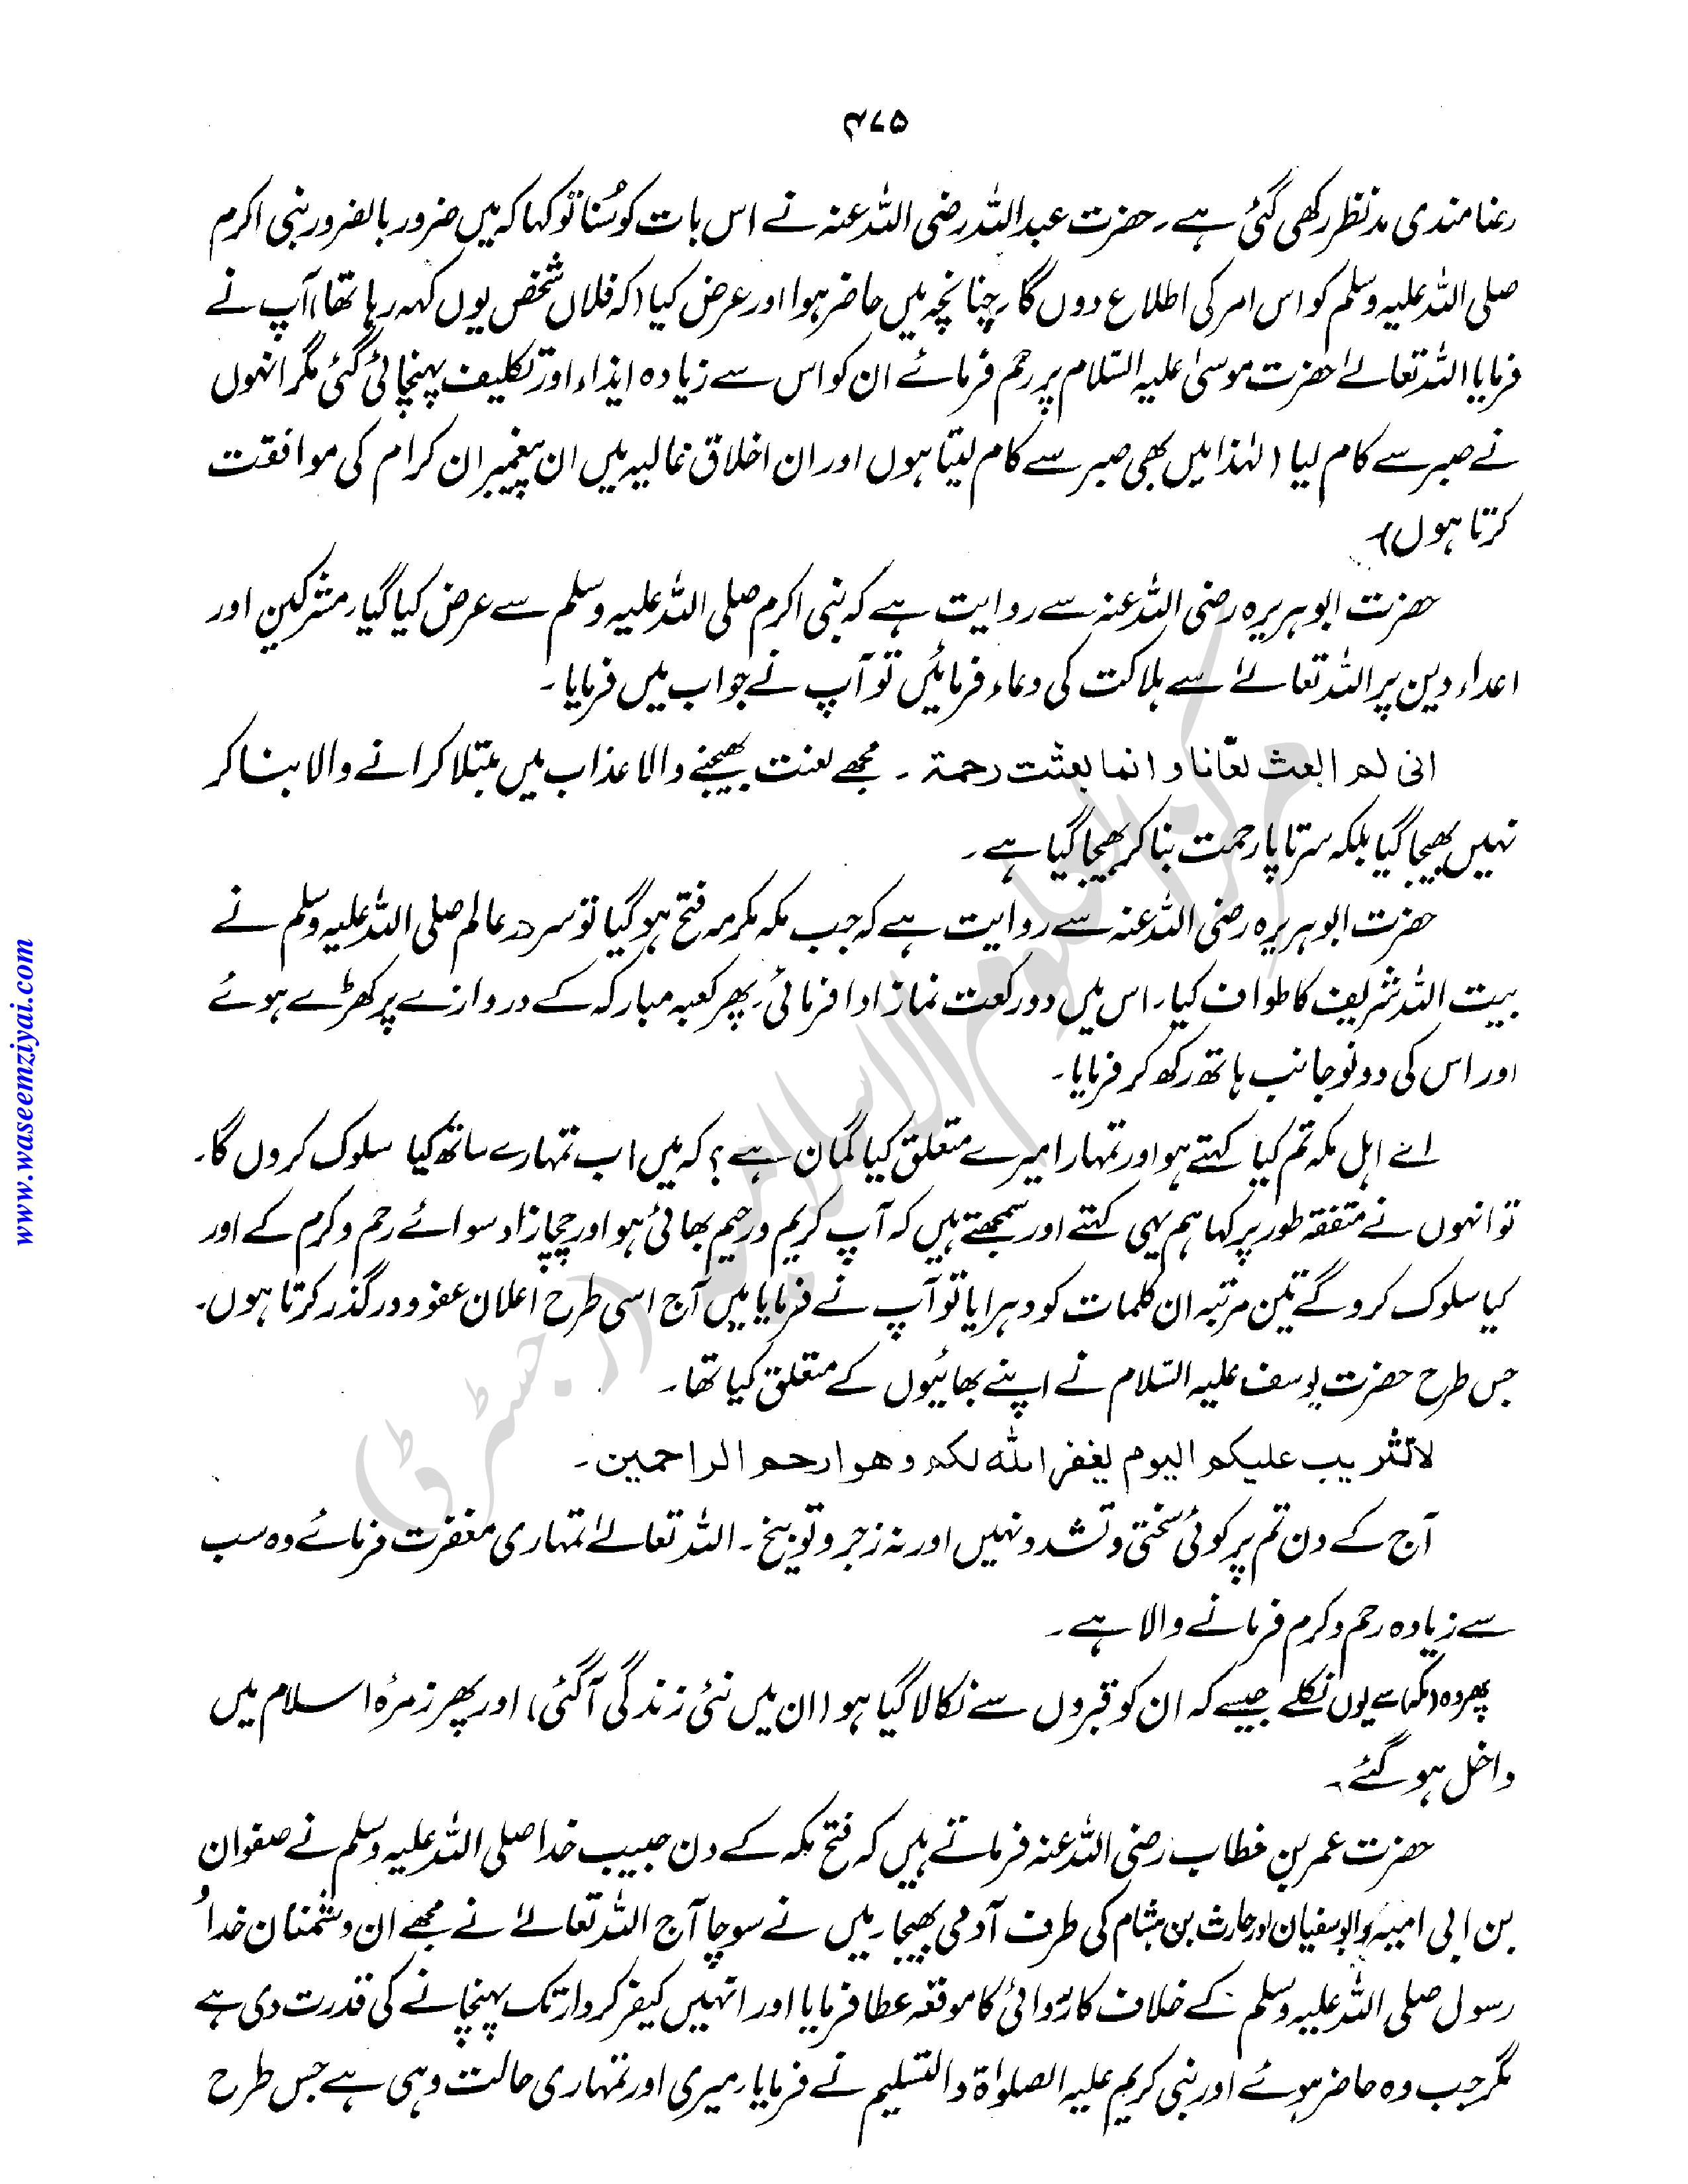 ۴۷۵
رضامندی مدنظر رکھی گئی ہے۔ حضرت عبداللہ رضی اللہ عنہ نے اس بات کو سُنا تو کہا کہ میں ضرور بالضرور نبی اکرم
صلی اللہ علیہ وسلم کو اس امر کی اطلاع دوں گا۔ چنانچہ میں حاضر ہوا اور عرض کیا (کہ فلاں شخص یوں کہہ رہا تھا) آپ نے
فرمایا اللہ تعالےٰ حضرت موسیٰ علیہ السّلام پر رحم فرمائے ان کو اس سے زیادہ ایذاء اور تکلیف پہنچائی گئی مگر انہوں
نے صبر سے کام لیا (لہٰذا میں بھی صبر سے کام لیتا ہوں اور ان اخلاق عالیہ میں ان پیغمبران کرام کی موافقت
کرتا ہوں)۔
حضرت ابوہریرہ رضی اللہ عنہ سے روایت ہے کہ نبی اکرم صلی اللہ علیہ وسلم سے عرض کیا گیا۔ مشرکین اور
اعداء دین پر اللہ تعالےٰ سے ہلاکت کی دعاء فرمائیں تو آپ نے جواب میں فرمایا۔
انی لم ابعث لعّانا و انما بعثت رحمة ۔ مجھے لعنت بھیجنے والا عذاب میں مبتلا کرانے والا بنا کر
نہیں بھیجا گیا بلکہ سرتاپا رحمت بنا کر بھیجا گیا ہے۔
حضرت ابوہریرہ رضی اللہ عنہ سے روایت ہے کہ جب مکہ مکرمہ فتح ہو گیا تو سرور عالم صلی اللہ علیہ وسلم نے
بیت اللہ شریف کا طواف کیا۔ اس میں دو رکعت نماز ادا فرمائی۔ پھر کعبہ مبارکہ کے دروازے پر کھڑے ہوئے
اور اس کی دونو جانب ہاتھ رکھ کر فرمایا۔
اے اہل مکہ تم کیا کہتے ہو اور تمہارا میرے متعلق کیا گمان ہے؟ کہ میں اب تمہارے ساتھ کیا سلوک کروں گا۔
تو انہوں نے متفقہ طور پر کہا ہم یہی کہتے اور سمجھتے ہیں کہ آپ کریم و رحیم بھائی ہو اور چچا زاد سوائے رحم و کرم کے اور
کیا سلوک کرو گے تین مرتبہ ان کلمات کو دہرایا تو آپ نے فرمایا میں آج اسی طرح اعلان عفو و درگذر کرتا ہوں۔
جس طرح حضرت یوسف علیہ السّلام نے اپنے بھائیوں کے متعلق کیا تھا۔
لا تثریب علیکم الیوم یغفر اللہ لکم و هو ارحم الراحمین۔
آج کے دن تم پر کوئی سختی و تشدد نہیں اور نہ زجر و توبیخ۔ اللہ تعالےٰ تمہاری مغفرت فرمائے وہ سب
سے زیادہ رحم و کرم فرمانے والا ہے۔
پھر وہ (مکہ) سے یوں نکلے جیسے کہ ان کو قبروں سے نکالا گیا ہو (ان میں نئی زندگی آگئی) اور پھر زمرۂ اسلام میں
داخل ہو گئے۔
حضرت عمر بن خطاب رضی اللہ عنہ فرماتے ہیں کہ فتح مکہ کے دن حبیب خدا صلی اللہ علیہ وسلم نے صفوان
بن ابی امیہ، و ابوسفیان اور حارث بن ہشام کی طرف آدمی بھیجا۔ میں نے سوچا آج اللہ تعالےٰ نے مجھے ان دشمنان خدا و
رسول صلی اللہ علیہ وسلم کے خلاف کاروائی کا موقعہ عطا فرمایا اور انہیں کیفر کردار تک پہنچانے کی قدرت دی ہے
مگر جب وہ حاضر ہوئے اور نبی کریم علیہ الصلوٰة والتسلیم نے فرمایا۔ میری اور تمہاری حالت وہی ہے جس طرح
www.waseemziyai.com
مرکز العلوم الاسلامیہ (رجسٹرڈ)